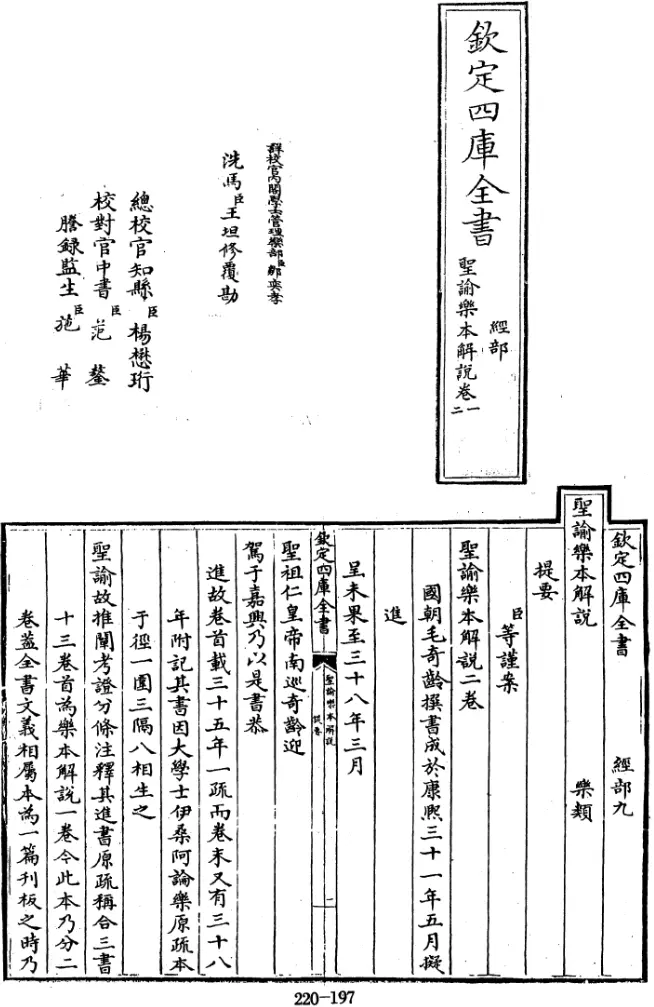 欽定四庫全書
經部
聖諭樂本解說卷一
二
詳校官內閣學士管理樂部臣鄒奕孝
洗馬臣王坦修覆勘
總校官知縣臣楊懋珩
校對官中書臣范鏊
謄錄監生臣施華
欽定四庫全書 經部九
聖諭樂本解說 樂類
提要
臣等謹案
聖諭樂本解說二卷
國朝毛奇齡撰書成於康熙三十一年五月擬
進
呈未果至三十八年三月
欽定四庫全書
聖諭樂本解說
提要
一
聖祖仁皇帝南巡奇齡迎
駕于嘉興乃以是書恭
進故卷首載三十五年一疏而卷末又有三十八
年附記其書因大學士伊桑阿論樂原疏本
于徑一圍三隔八相生之
聖諭故推闡考證分條注釋其進書原疏稱合三書
十三卷首為樂本解說一卷今此本乃分二
卷蓋全書文義相屬本為一篇刊板之時乃
220-197